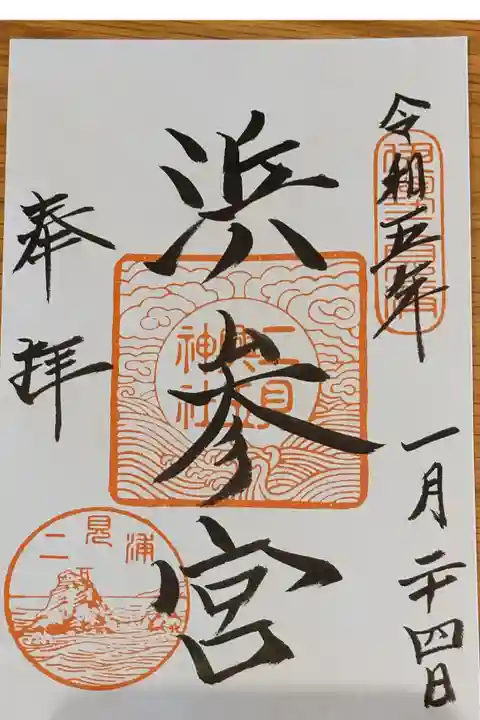 令和五年
一月二十四日
浜参宮
二見興玉神社
奉拝
二見浦